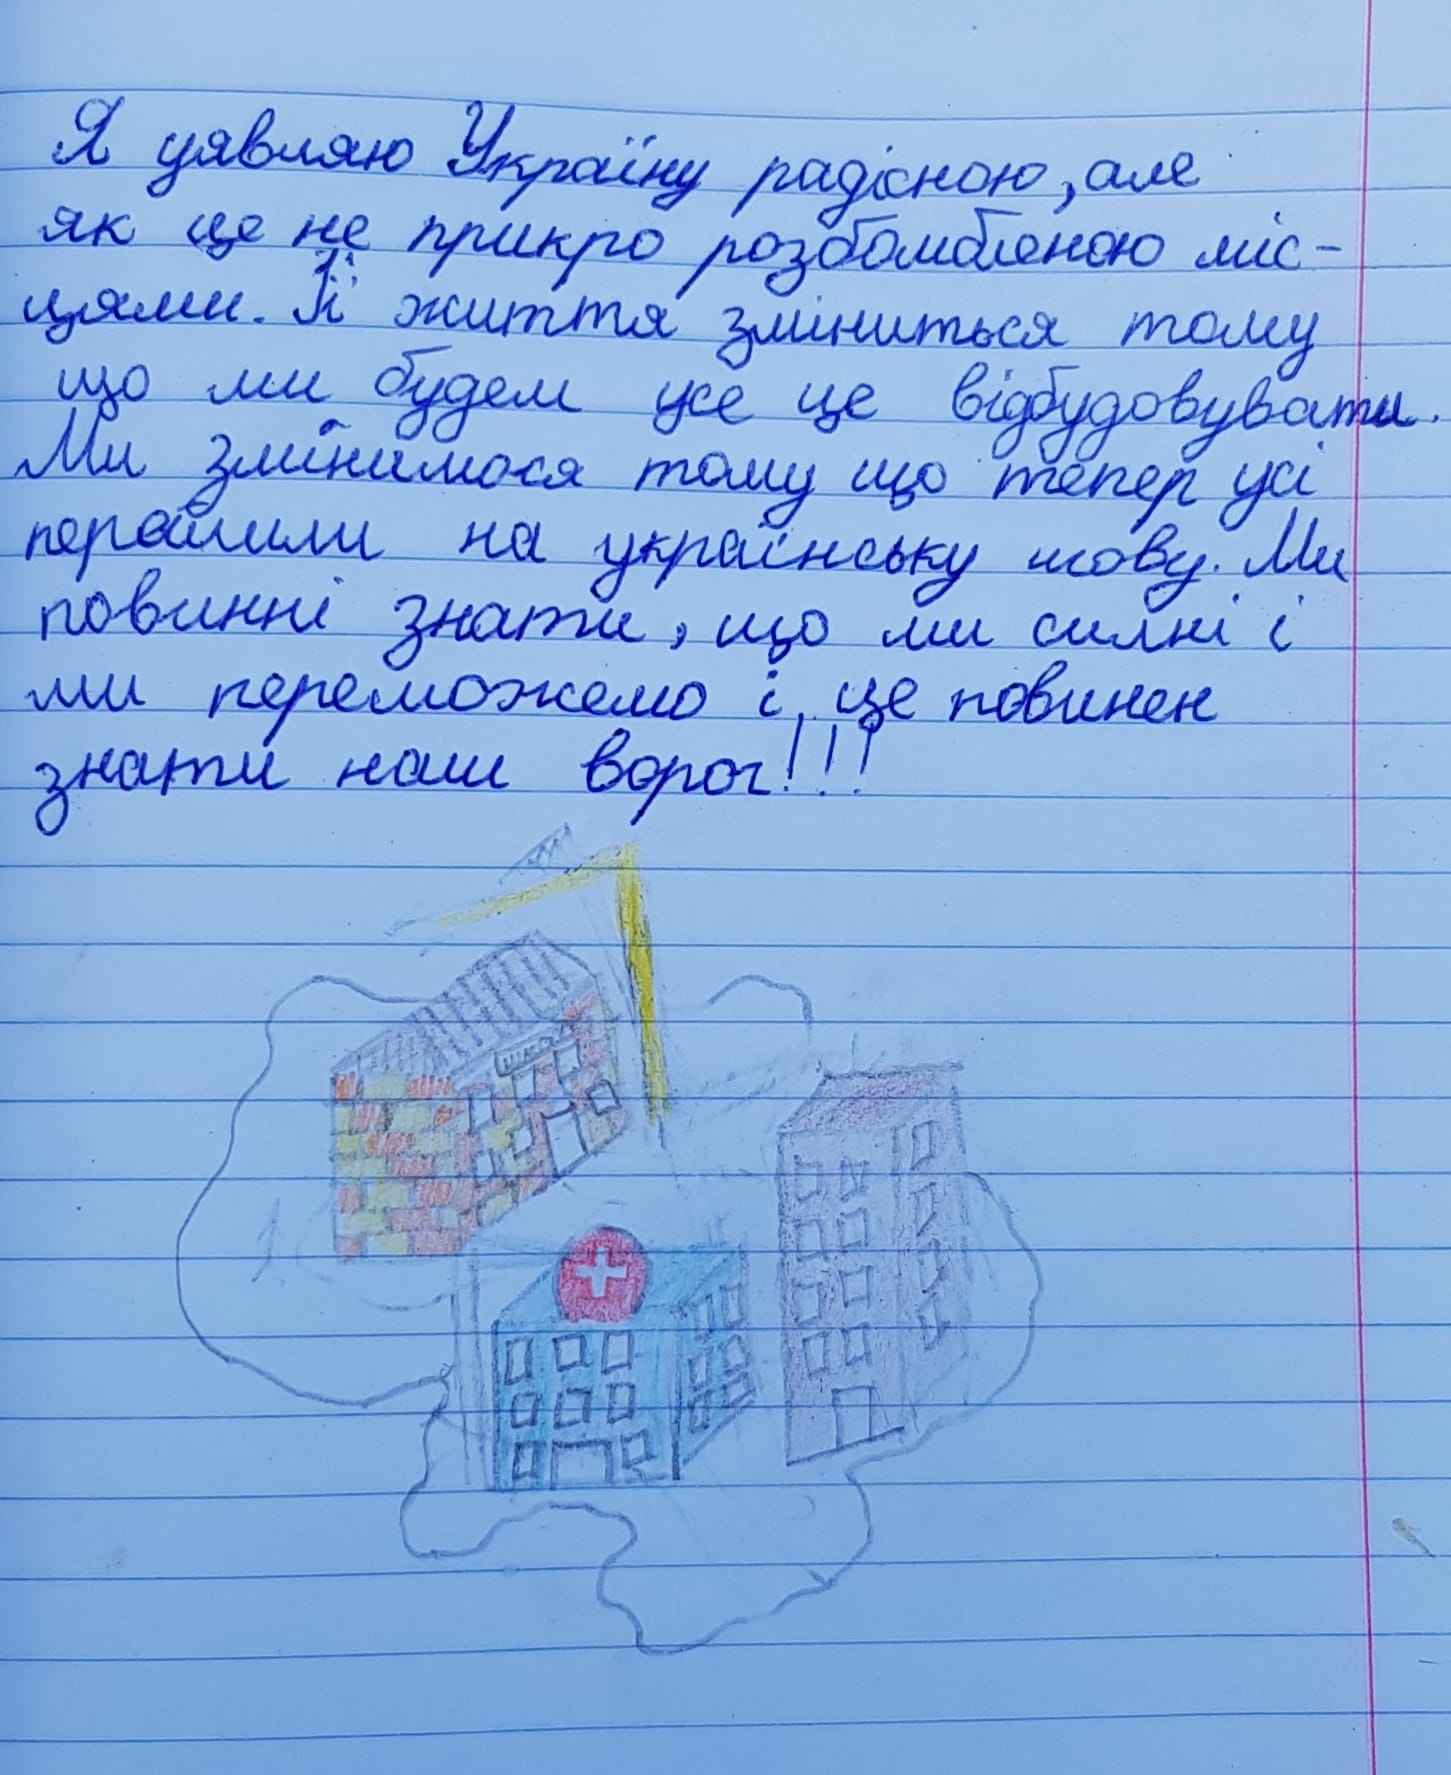 Я уявляю Україну радісною, але
як це не прикро розбомбленою міс-
цями. Її життя зміниться тому
що ми будем усе це відбудовувати.
Ми змінимося тому що тепер усі
перейшли на українську мову. Ми
повинні знати, що ми силні і
ми переможемо і це повинен
знати наш ворог!!!